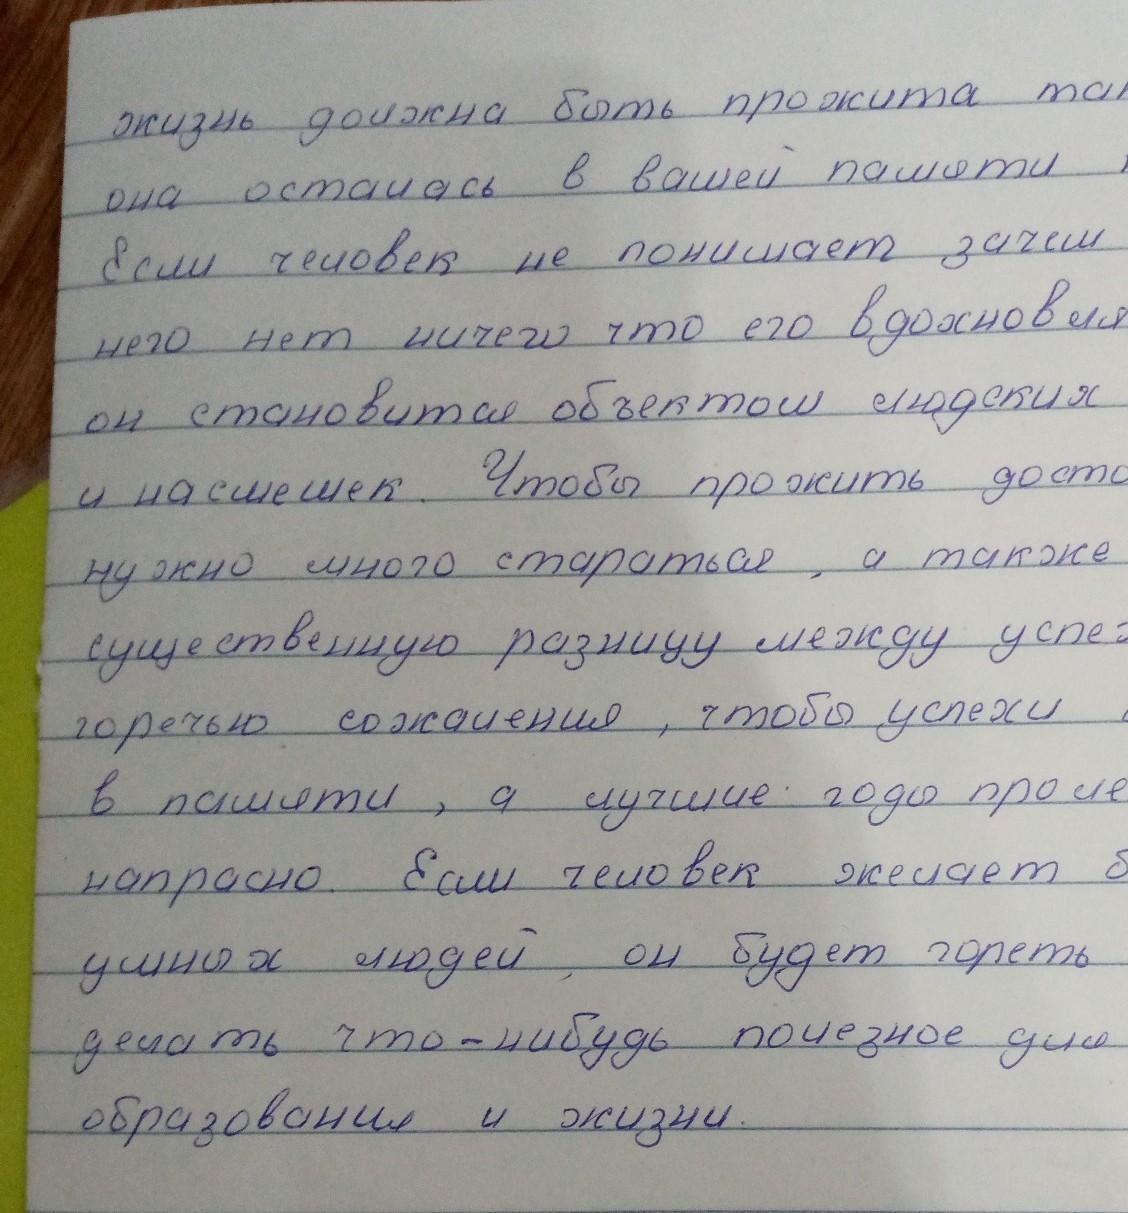 жизнь должна быть прожита так
она осталась в вашей памяти
Если человек не понимает зачем
него нет ничего что его вдохновля
он становится объектом людских
и насмешек. Чтобы прожить досто
нужно много стараться, а также
существенную разницу между успех
горечью сожаления, чтобы успехи
в памяти, а лучшие годы проле
напрасно. Если человек желает б
умных людей, он будет гореть
делать что-нибудь полезное для
образования и жизни.